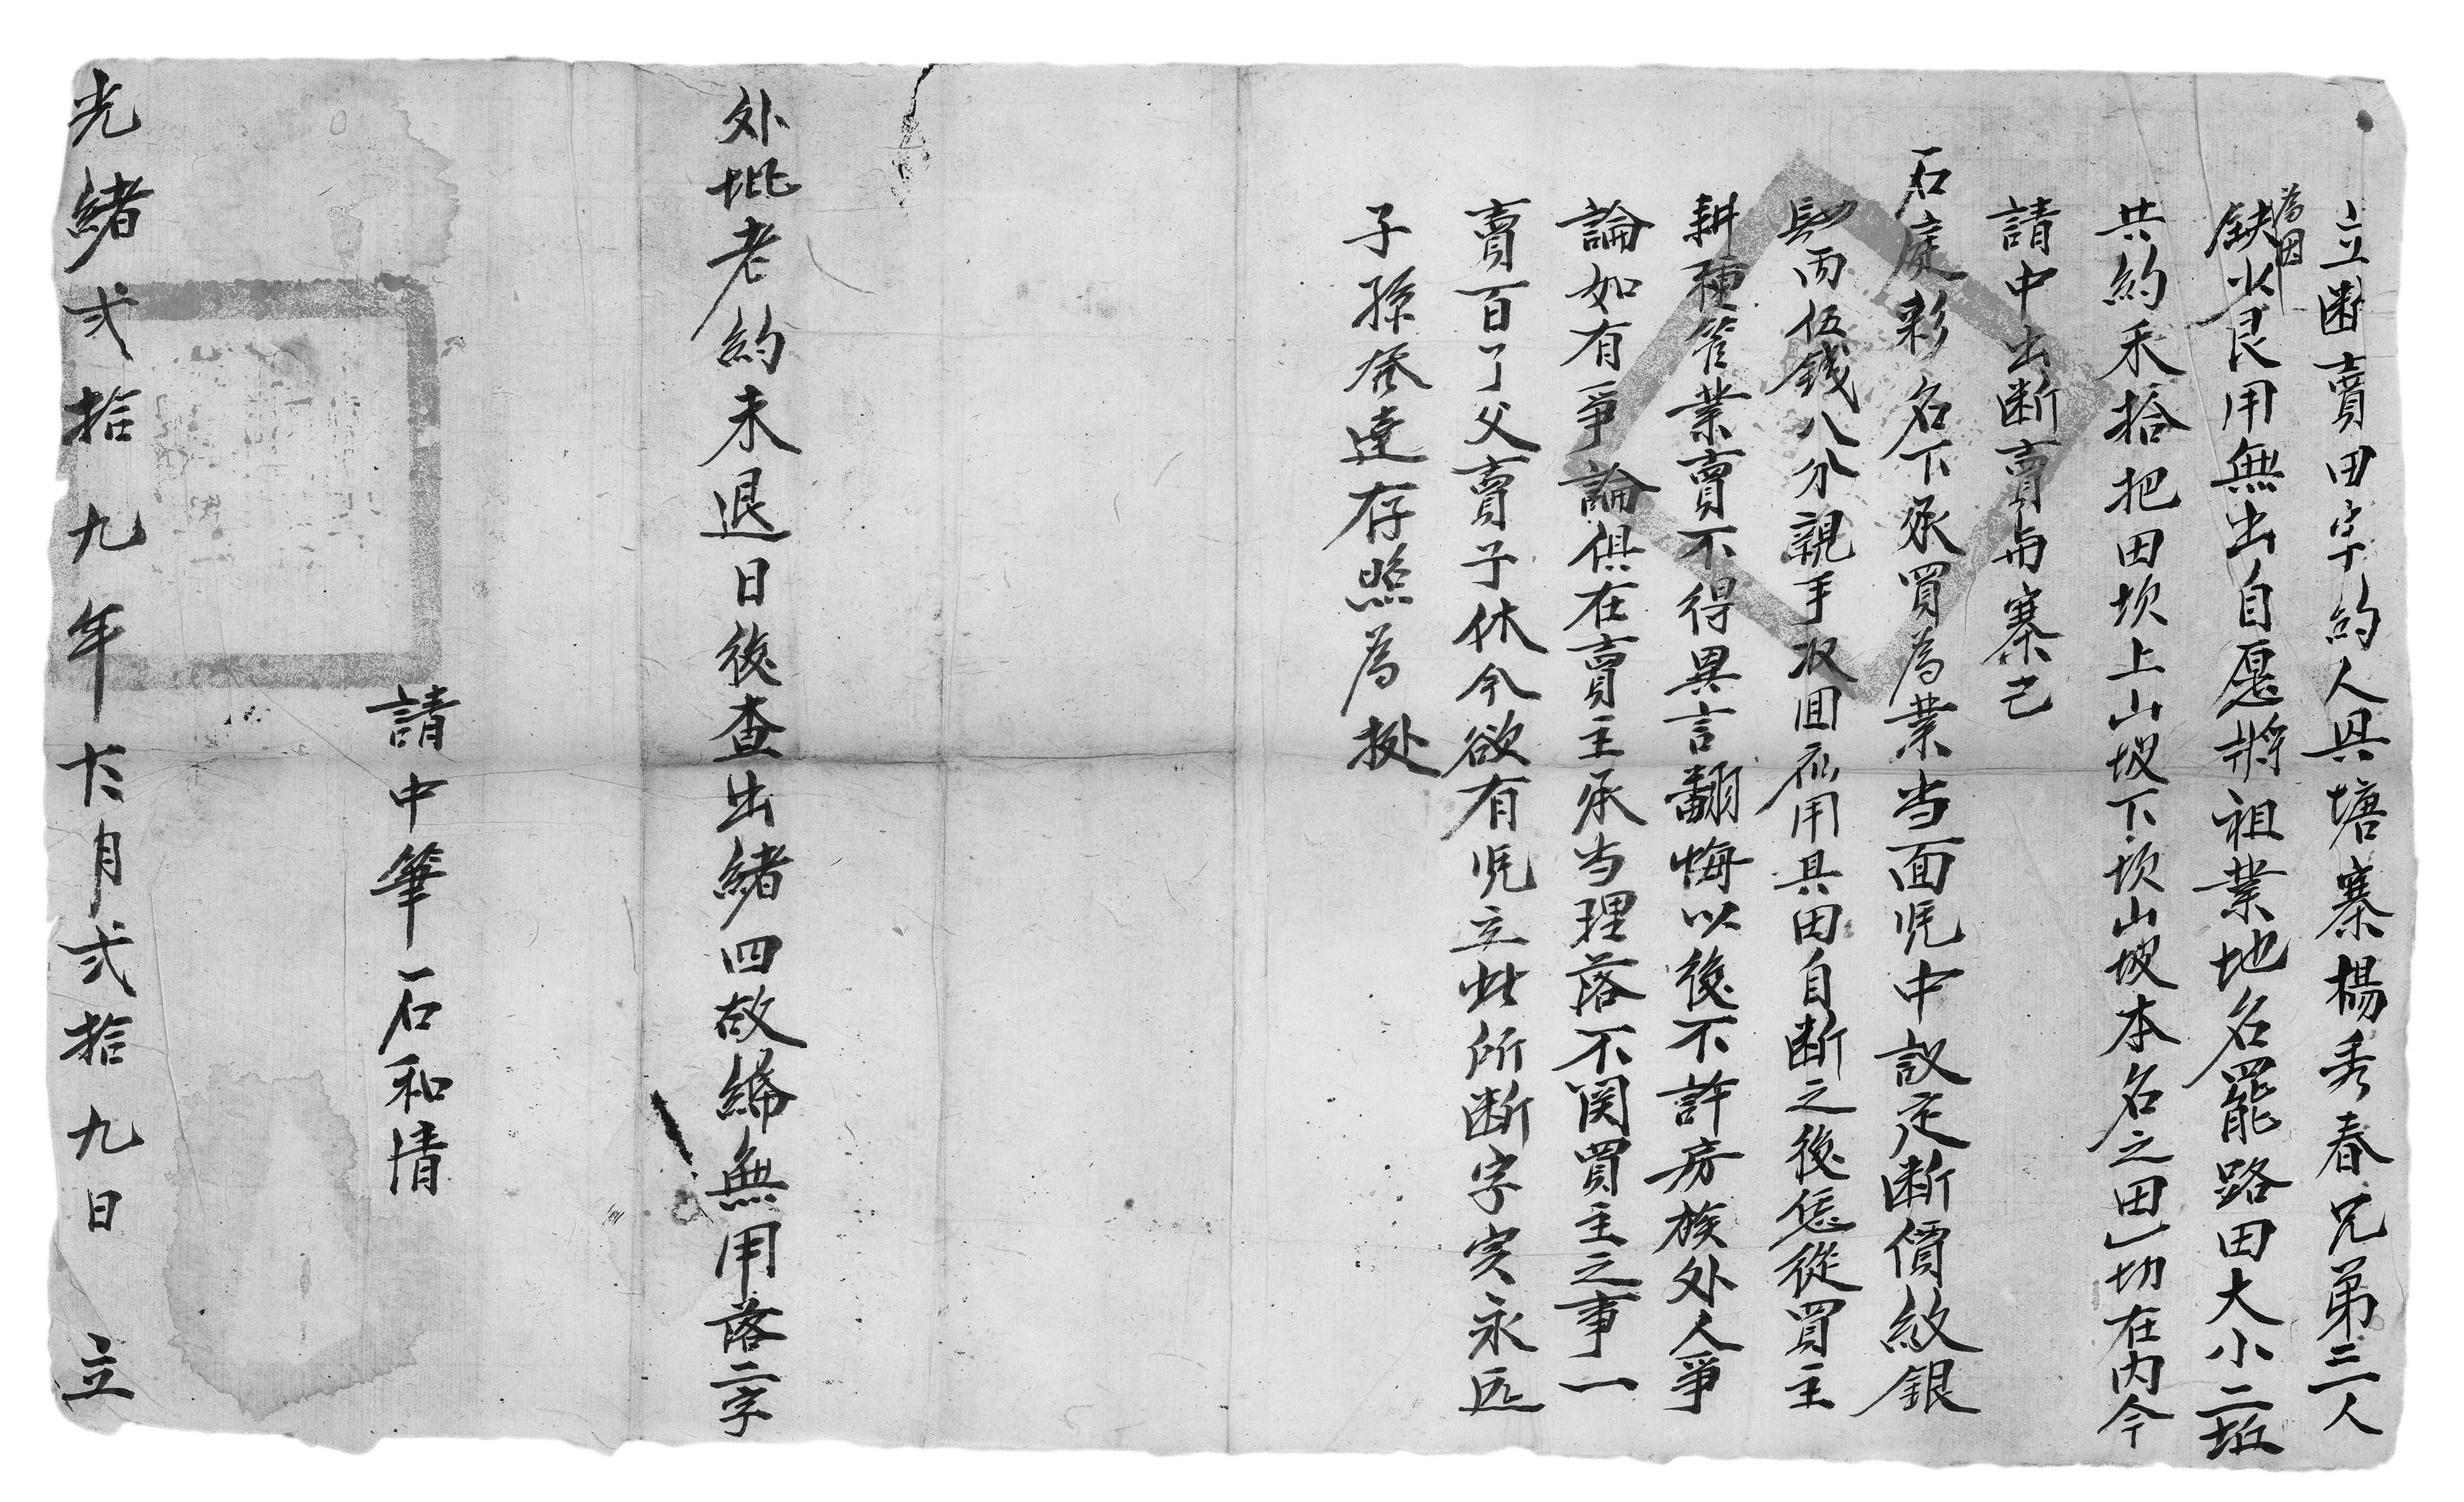 立断賣田字約人具塘寨楊秀春兄弟三人
為因
缺少艮用無出自愿將祖業地名罷路田大小二坵
共約禾拾把田坎上山坡下坎山坡本名之田一切在内今
請中出断賣與寨己
石庭彩名下承買為業当面凭中議定断價紋銀
両伍錢八分親手収囬應用其田自断之後恁從買主
耕種管業賣不得異言翻悔以後不許房族外人爭
論如有爭論俱在賣主承当理落不関買主之事一
賣百了父賣子休今欲有凭立此所断字寔永远
子孫發達存照為據
外批老約未退日後查出緒四故綿無用落二字
請中筆石和清
光緒弍拾九年十二月弍拾九日立